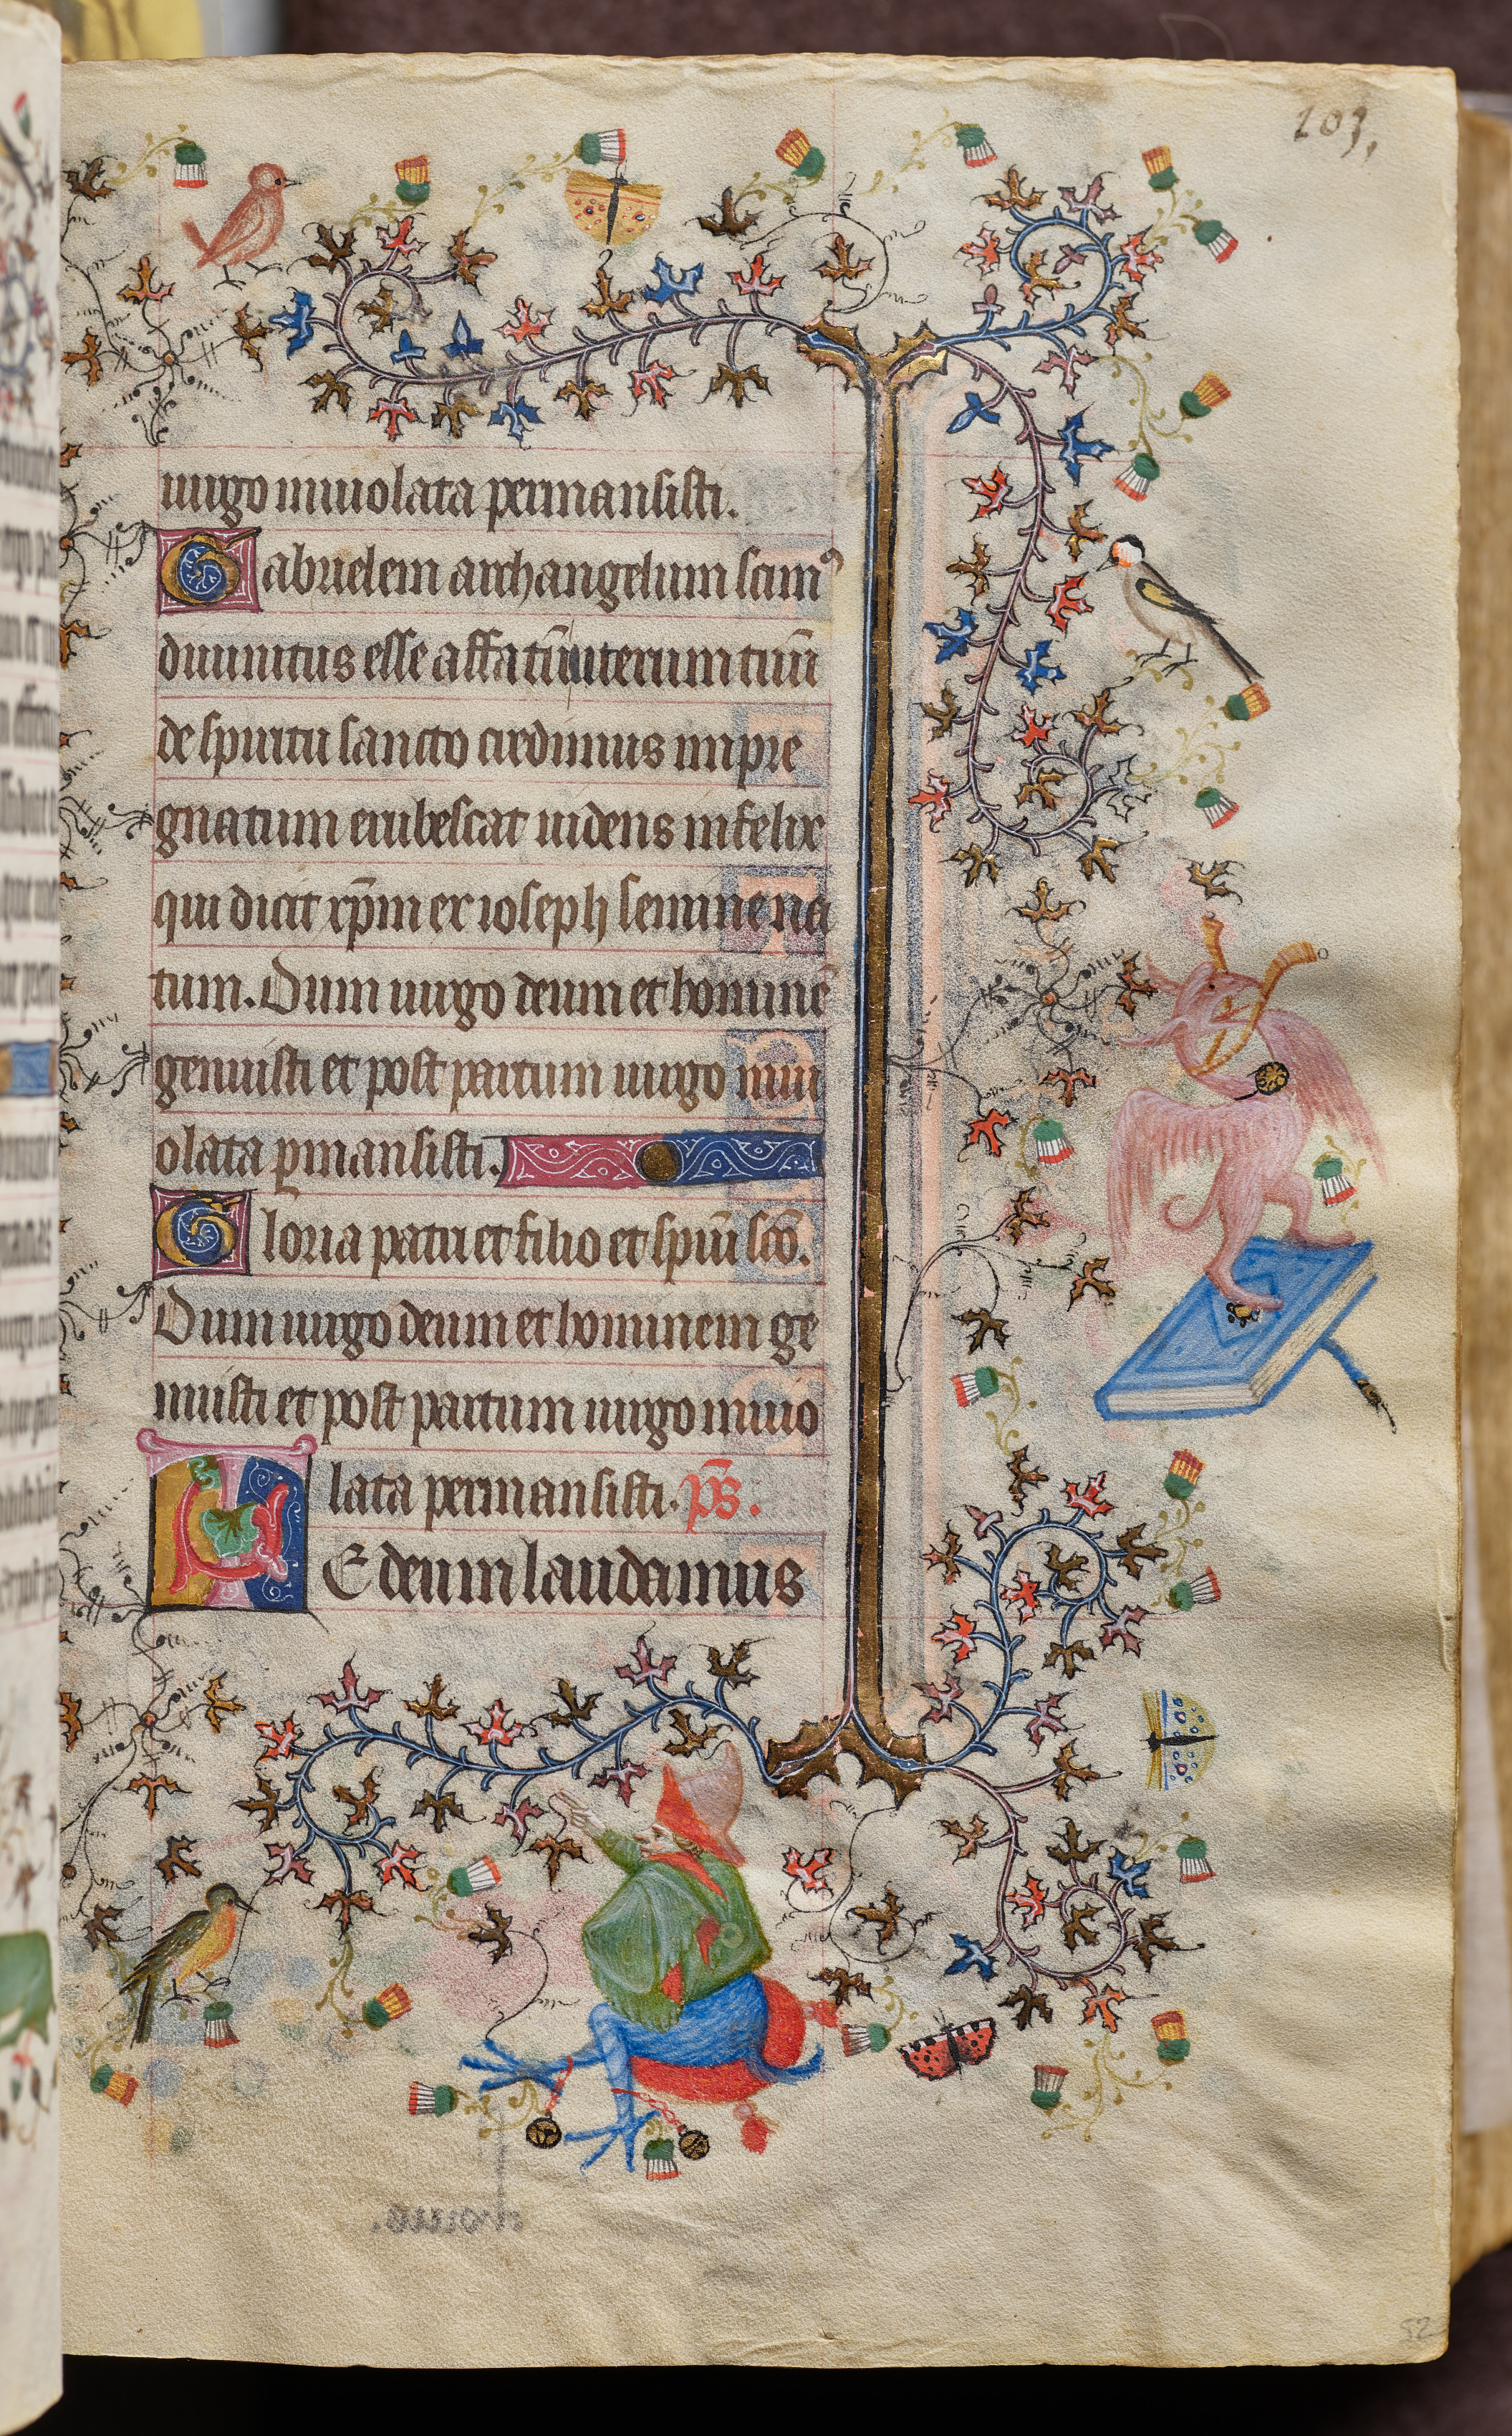 103,
uirgo inuiolata permansisti.
Gabrielem archangelum scimꝰ
diuinitus esse affatū uterum tuū
de spiritu sancto credimus impre
gnatum erubescat uidens infelix
qui dicit xp̄m ex ioseph semine na
tum. Dum uirgo deum et hominē
genuisti et post partum uirgo inui
olata ꝑmansisti.
Gloria patri et filio et spiū scō.
Dum uirgo deum et hominem ge
nuisti et post partum uirgo inuio
lata permansisti. p̄s.
TE deum laudamus
52